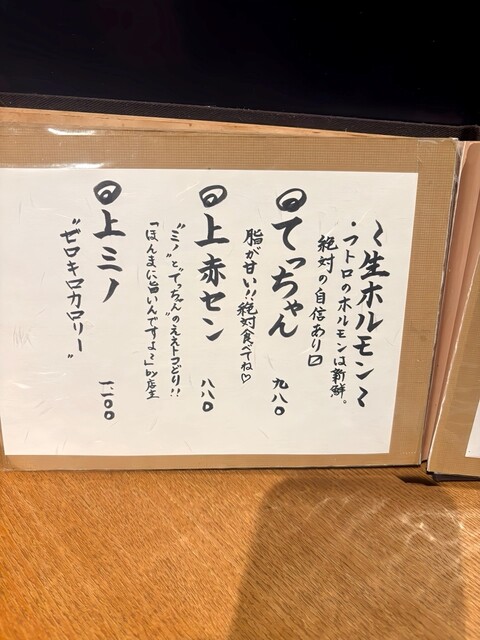 〜生ホルモン〜
・フトロのホルモンは新鮮。
絶対の自信あり〼
◎てっちゃん 九八〇
脂が甘い!!絶対食べてね♡
◎上赤セン 八八〇
"ミノ"と"てっちゃん"のええトコどり!!
「ほんまに旨いんですよ〜」by店主
◎上ミノ 一二〇〇
"ゼロキロカロリー"